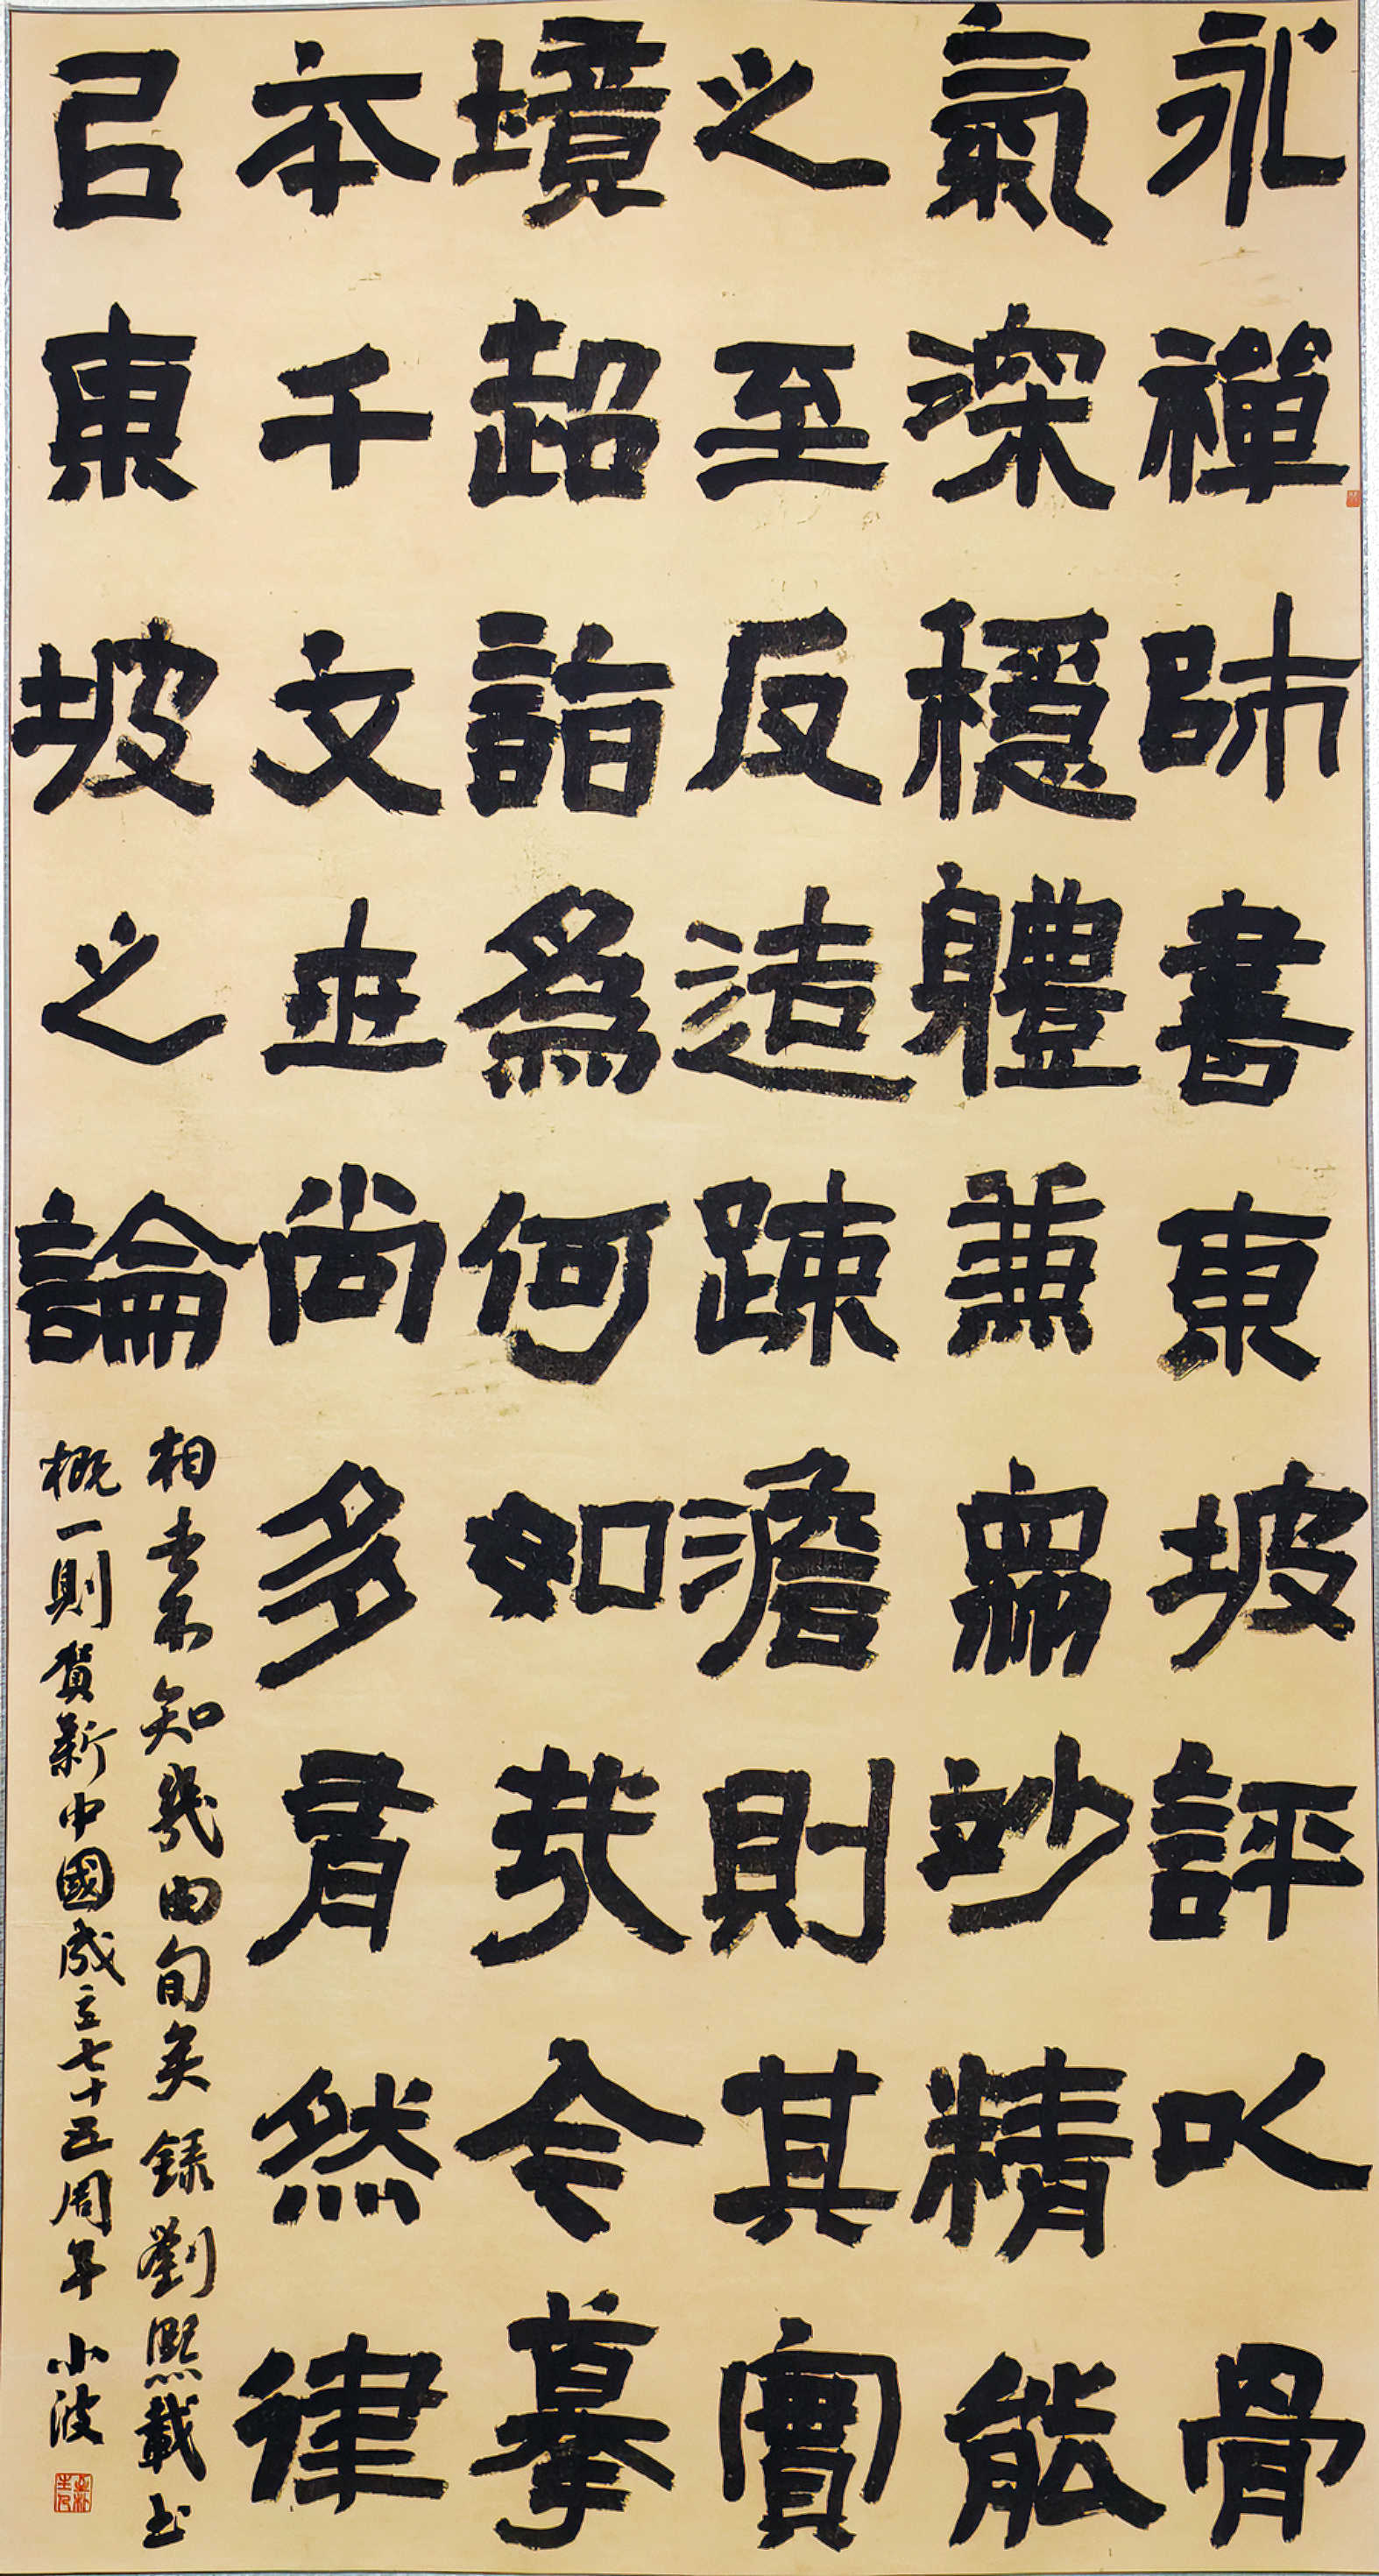 永禪師書東坡評以骨
氣深穩體兼衆妙精能
之至反造疎澹則其實
境超詣爲何如哉今摹
本千文世尚多有然律
以東坡之論
相去不知幾由旬矣錄劉熙載書
概一則賀新中國成立七十五周年 小波